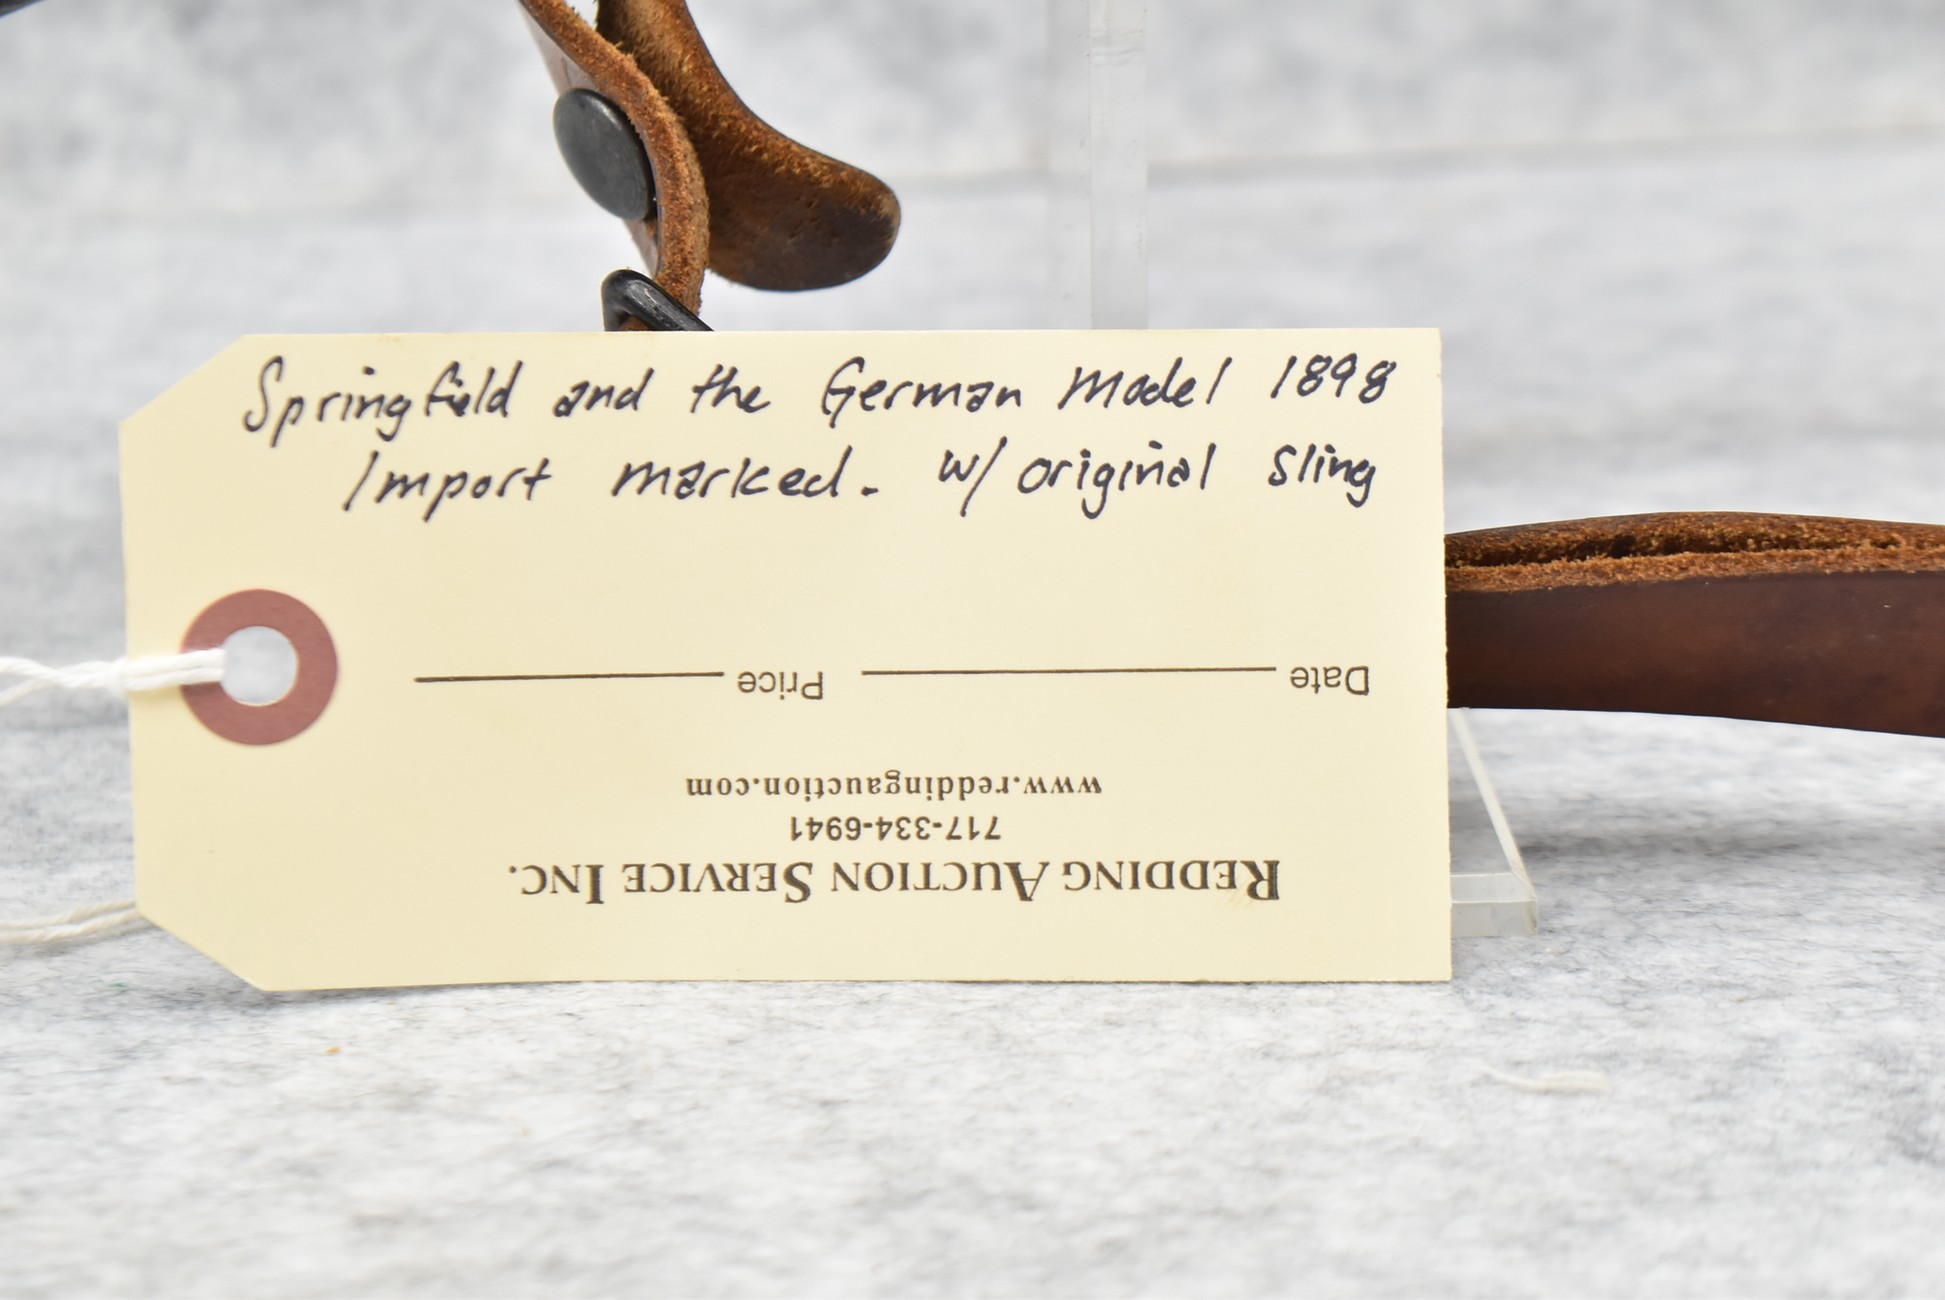 Springfield and the German Model 1898
Import marked. w/ original Sling
REDDING AUCTION SERVICE INC.
717-334-6941
www.reddingauction.com
Date Price